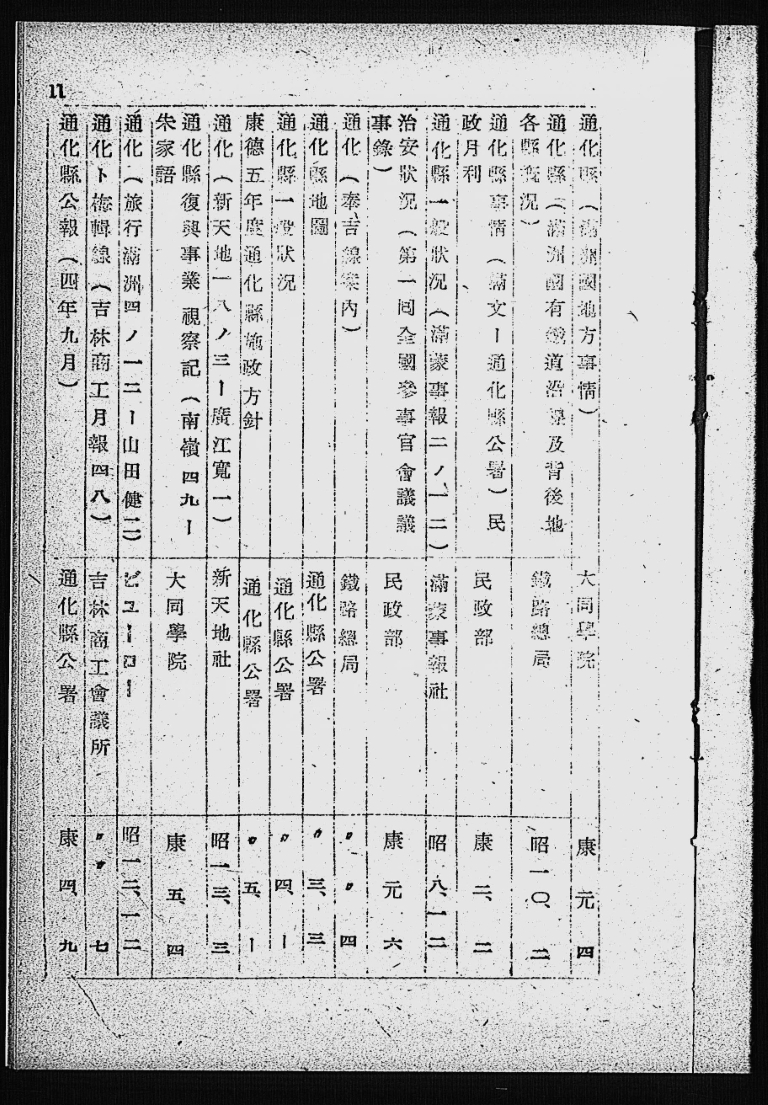 11
通化縣（滿洲國地方事情） 大同學院 康元 四
通化縣（滿洲國有鐵道沿線及背後地
各縣概況） 鐵路總局 昭一〇、二
通化縣事情（滿文ー通化縣公署）民
政月刊 民政部 康二、二
通化縣一般狀況（滿蒙事報二ノ一二） 滿蒙事報社 昭八、一二
治安狀況（第一囘全國參事官會議議
事錄） 民政部 康元 六
通化（奉吉線案內） 鐵路總局 〃 〃 四
通化縣地圖 通化縣公署 〃 三、三
通化縣一般狀況 通化縣公署 〃 四、ー
康德五年度通化縣施政方針 通化縣公署 〃 五、ー
通化（新天地一八ノ三ー廣江寬一） 新天地社 昭一三、三
通化縣復興事業視察記（南嶺四九ー
朱家語 大同學院 康五、四
通化（旅行滿洲四ノ一二ー山田健二） ビューロー 昭一二、一二
通化ト梅輯線（吉林商工月報四八） 吉林商工會議所 〃 〃 七
通化縣公報（四年九月） 通化縣公署 康四、九